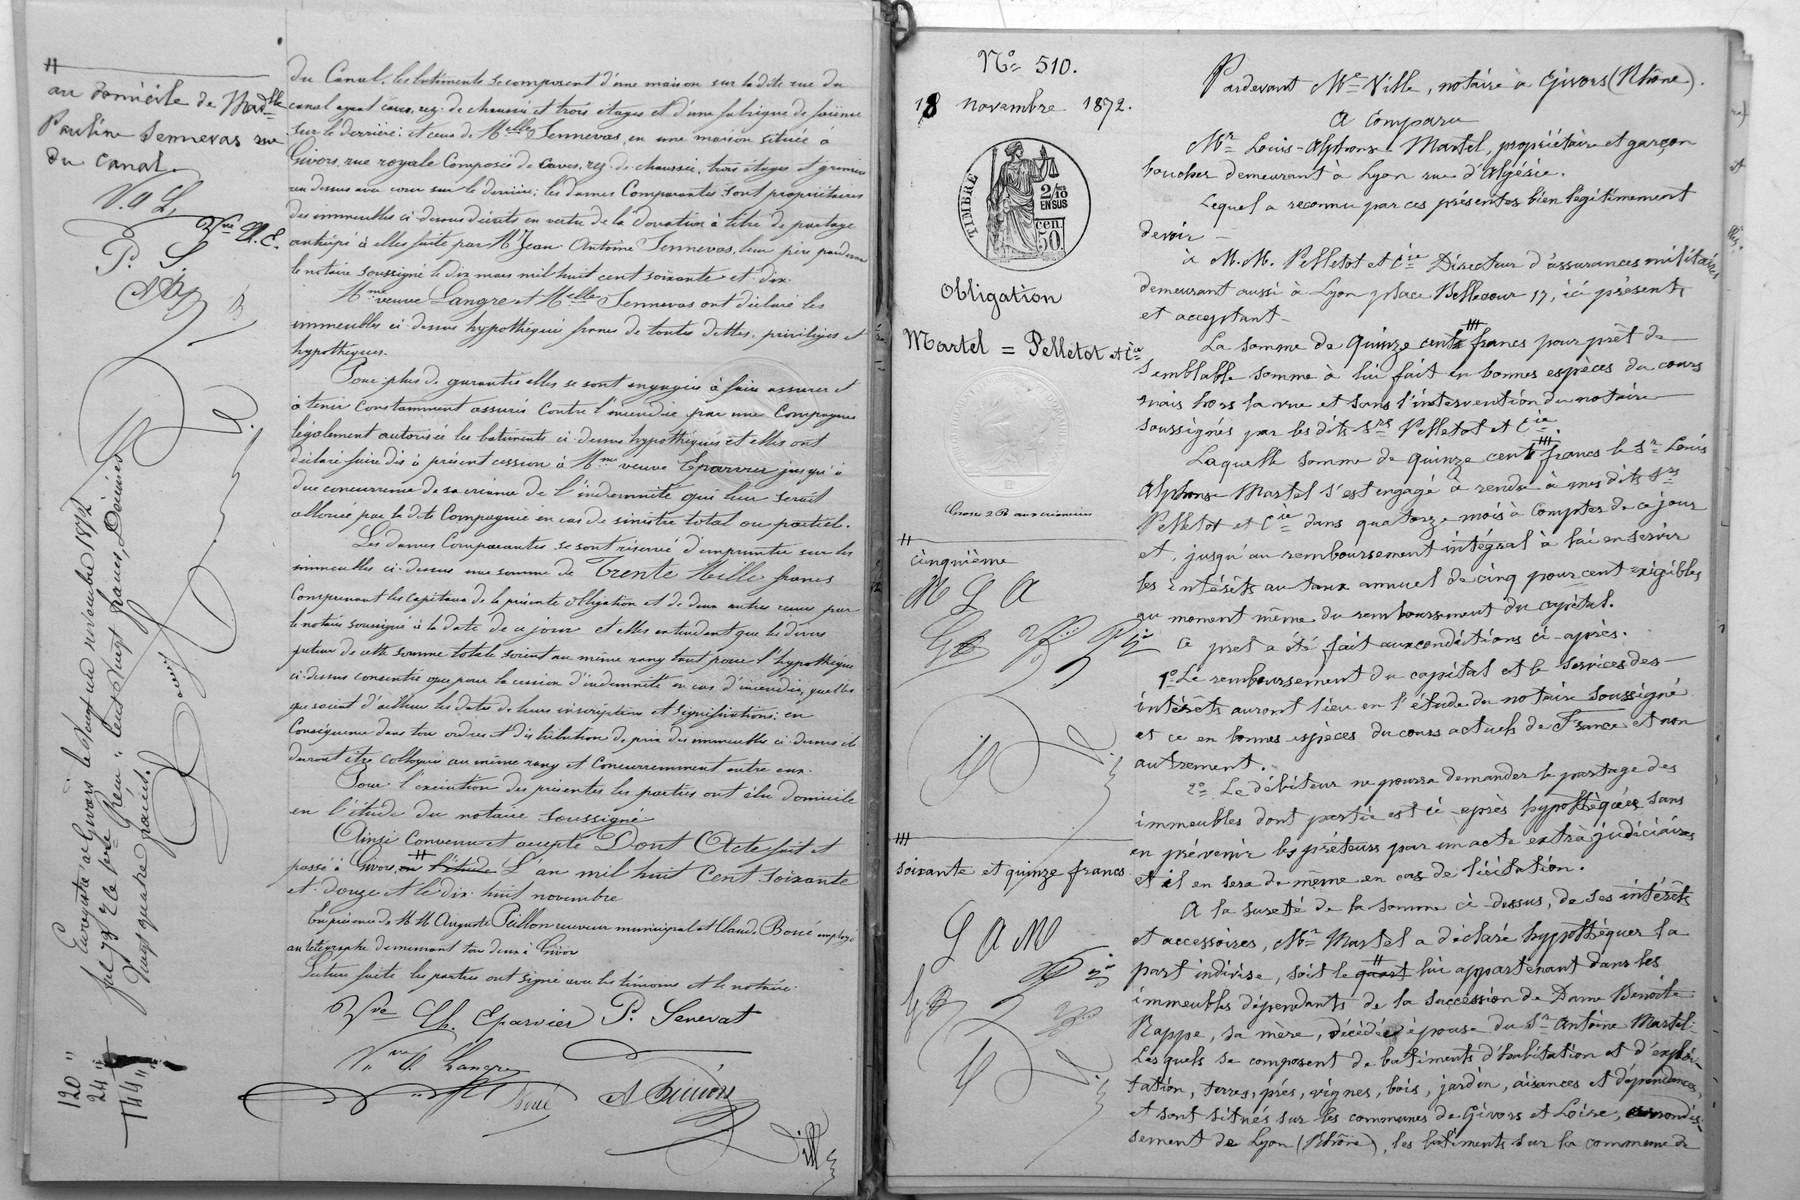 au domicile de Mad^lle
Pauline Sennevas rue
du Canal.
V. A L
Vve Ch. E.
P. S
du Canal, les batiments se composent d'une maison sur la dite rue du
canal ayant caves, rez-de-chaussée et trois étages et d'une fabrique de faïence
sur le derrière; et ceux de Melle Sennevas, en une maison située à
Givors, rue royale composée de caves, rez-de-chaussée, trois étages et greniers
au dessus avec cour sur le derrière; les dames Comparantes sont propriétaires
des immeubles ci-dessus décrits en vertu de la donation à titre de partage
anticipé à elles faite par M. Jean Antoine Sennevas, leur père pardevant
le notaire soussigné le dix mars mil huit cent soixante et dix.
Mme veuve Langre et Melle Sennevas ont déclaré les
immeubles ci-dessus hypothéqués francs de toutes dettes, privilèges et
hypothèques.
Pour plus de garanties elles se sont engagées à faire assurer et
à tenir constamment assurés contre l'incendie par une Compagnie
légalement autorisée les batiments ci-dessus hypothéqués et elles ont
déclaré faire dès à présent cession à Mme veuve Eparvier jusqu'à
due concurrence de sa créance de l'indemnité qui leur serait
allouée par la dite Compagnie en cas de sinistre total ou partiel.
Les dames Comparantes se sont réservé d'emprunter sur les
immeubles ci-dessus une somme de Trente Mille francs
comprenant les capitaux de la présente obligation et de deux autres reçues par
le notaire soussigné à la date de ce jour et elles entendent que les divers
prêteurs de cette somme totale soient au même rang tant pour l'hypothèque
ci-dessus consentie que pour la cession d'indemnité en cas d'incendie, quelles
que soient d'ailleurs les dates de leurs inscriptions et significations; en
conséquence dans tous ordres et distribution de prix des immeubles ci-dessus ils
devront être colloqués au même rang et concurremment entre eux.
Pour l'exécution des présentes les parties ont élu domicile
en l'étude du notaire soussigné
Ainsi convenu et accepté Dont Acte fait et
passé à Givors, en l'étude L'an mil huit cent soixante
et douze et le dix-huit novembre
En présence de MM Auguste Paillon receveur municipal et Claude Boué employé
au télégraphe demeurant tous deux à Givors
Lecture faite les parties ont signé avec les témoins et le notaire.
Vve Ch. Eparvier P. Senevat
Vve A. Langre
Boué
Ville
Enregistré à Givors le vingt un novembre 1872
fol 79 R
Reçu : cent vingt francs, Décimes
Vingt quatre francs.
120 "
24 "
144 "
N° 510.
18 novembre 1872.
TIMBRE
2/10 EN SUS
50 cen.
Obligation
Martel = Pelletot et Cie
Grosse 2 R aux créanciers
cinquième
M L A
soixante et quinze francs
L A M
Pardevant Me Ville, notaire à Givors (Rhône).
A Comparu
Mr Louis-Alphonse Martel, propriétaire et garçon
boucher demeurant à Lyon rue d'Algésie.
Lequel a reconnu par ces présentes bien légitimement
devoir
à M.M. Pelletot et Cie Directeur d'assurances militaires
demeurant aussi à Lyon place Bellecour 17, ici présents
et acceptant
La somme de quinze cent francs pour prêt de
semblable somme à lui fait en bonnes espèces du cours
mais hors la vue et sans l'intervention du notaire
soussignés par les dits Srs Pelletot et Cie.
Laquelle somme de quinze cent francs le Sr Louis
Alphonse Martel s'est engagé à rendre à mes dits Srs
Pelletot et Cie dans quatorze mois à compter de ce jour
et, jusqu'au remboursement intégral à lui en servir
les intérêts au taux annuel de cinq pour cent exigibles
au moment même du remboursement du capital.
Ce prêt a été fait aux conditions ci-après.
1° Le remboursement du capital et le services des
intérêts auront lieu en l'étude du notaire soussigné
et ce en bonnes espèces du cours actuels de France et non
autrement.
2° Le débiteur ne pourra demander le partage des
immeubles dont partie est ci-après hypothéquée sans
en prévenir les prêteurs par un acte extra judiciaires
et il en sera de même en cas de licitation.
A la sureté de la somme ci-dessus, de ses intérêts
et accessoires, Mr Martel a déclaré hypothéquer la
part indivise, soit le quart lui appartenant dans les
immeubles dépendants de la succession de Dame Benoîte
Rappe, sa mère, décédée épouse du Sr Antoine Martel.
Lesquels se composent de batiments d'habitation et d'exploi-
tation, terres, prés, vignes, bois, jardin, aisances et dépendances,
et sont situés sur les communes de Givors et Loire, arrondis-
sement de Lyon (Rhône), les batiments sur la commune de